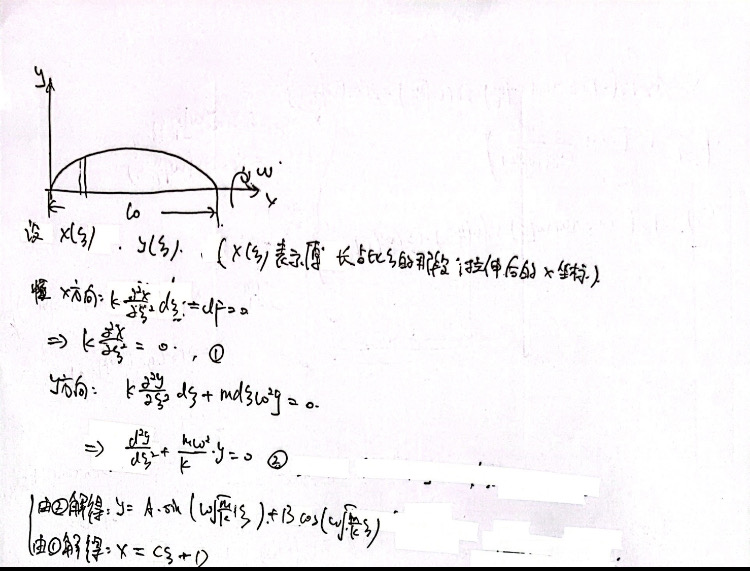 y
ω
x
l₀
设 x(ξ) . y(ξ). (x(ξ)表示原长占比ξ的那段拉伸后的x坐标)
x方向: k ∂²x/∂ξ² dξ = dF = 0
⇒ k ∂²x/∂ξ² = 0. , ①
y方向: k ∂²y/∂ξ² dξ + mdξω²y = 0.
⇒ d²y/dξ² + mω²/k · y = 0 ②
由②解得: y = A·sin(ω√(m/k) ξ) + B cos(ω√(m/k) ξ)
由①解得: x = Cξ + D